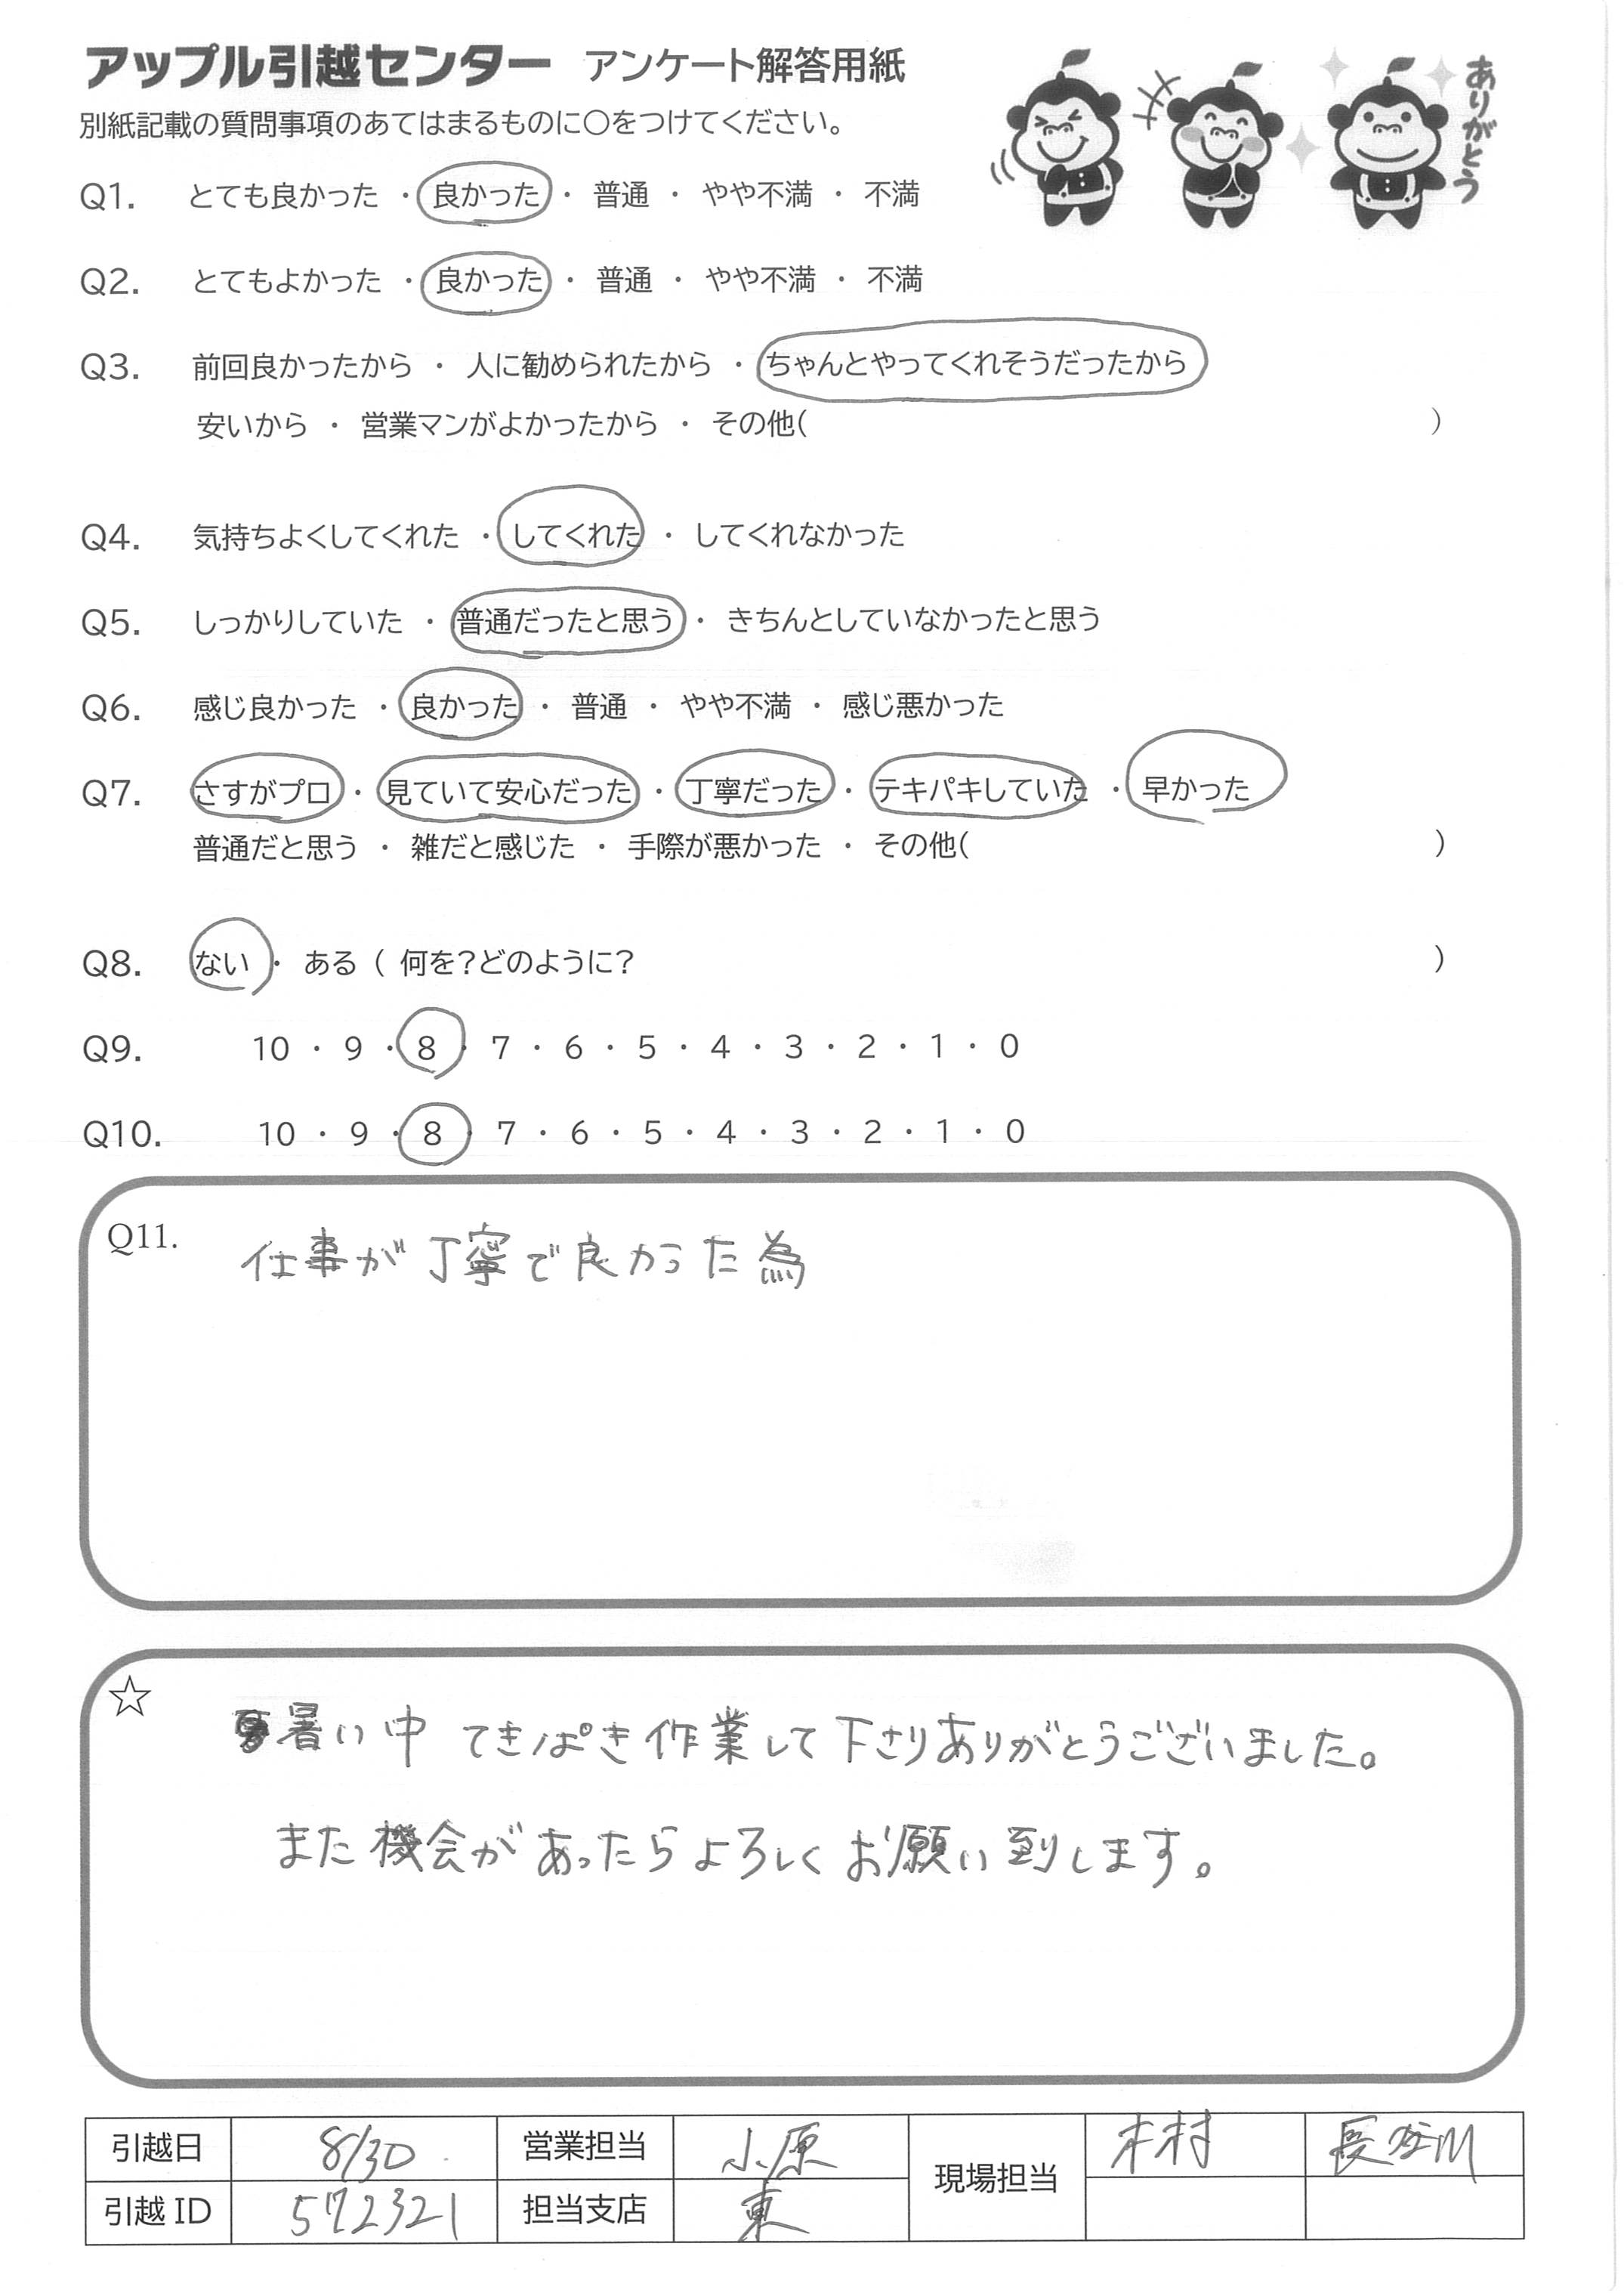 アップル引越センター アンケート解答用紙
ありがとう
別紙記載の質問事項のあてはまるものに○をつけてください。
Q1. とても良かった ・ 良かった ・ 普通 ・ やや不満 ・ 不満
Q2. とてもよかった ・ 良かった ・ 普通 ・ やや不満 ・ 不満
Q3. 前回良かったから ・ 人に勧められたから ・ ちゃんとやってくれそうだったから
安いから ・ 営業マンがよかったから ・ その他( )
Q4. 気持ちよくしてくれた ・ してくれた ・ してくれなかった
Q5. しっかりしていた ・ 普通だったと思う ・ きちんとしていなかったと思う
Q6. 感じ良かった ・ 良かった ・ 普通 ・ やや不満 ・ 感じ悪かった
Q7. さすがプロ ・ 見ていて安心だった ・ 丁寧だった ・ テキパキしていた ・ 早かった
普通だと思う ・ 雑だと感じた ・ 手際が悪かった ・ その他( )
Q8. ない ・ ある ( 何を?どのように? )
Q9. 10 ・ 9 ・ 8 ・ 7 ・ 6 ・ 5 ・ 4 ・ 3 ・ 2 ・ 1 ・ 0
Q10. 10 ・ 9 ・ 8 ・ 7 ・ 6 ・ 5 ・ 4 ・ 3 ・ 2 ・ 1 ・ 0
Q11. 仕事が丁寧で良かった為
☆ 暑い中 てきぱき作業して下さりありがとうございました。
また機会があったらよろしくお願い到します。
引越日 8/30 営業担当 小原 現場担当 木村 長谷川
引越ID 572321 担当支店 東